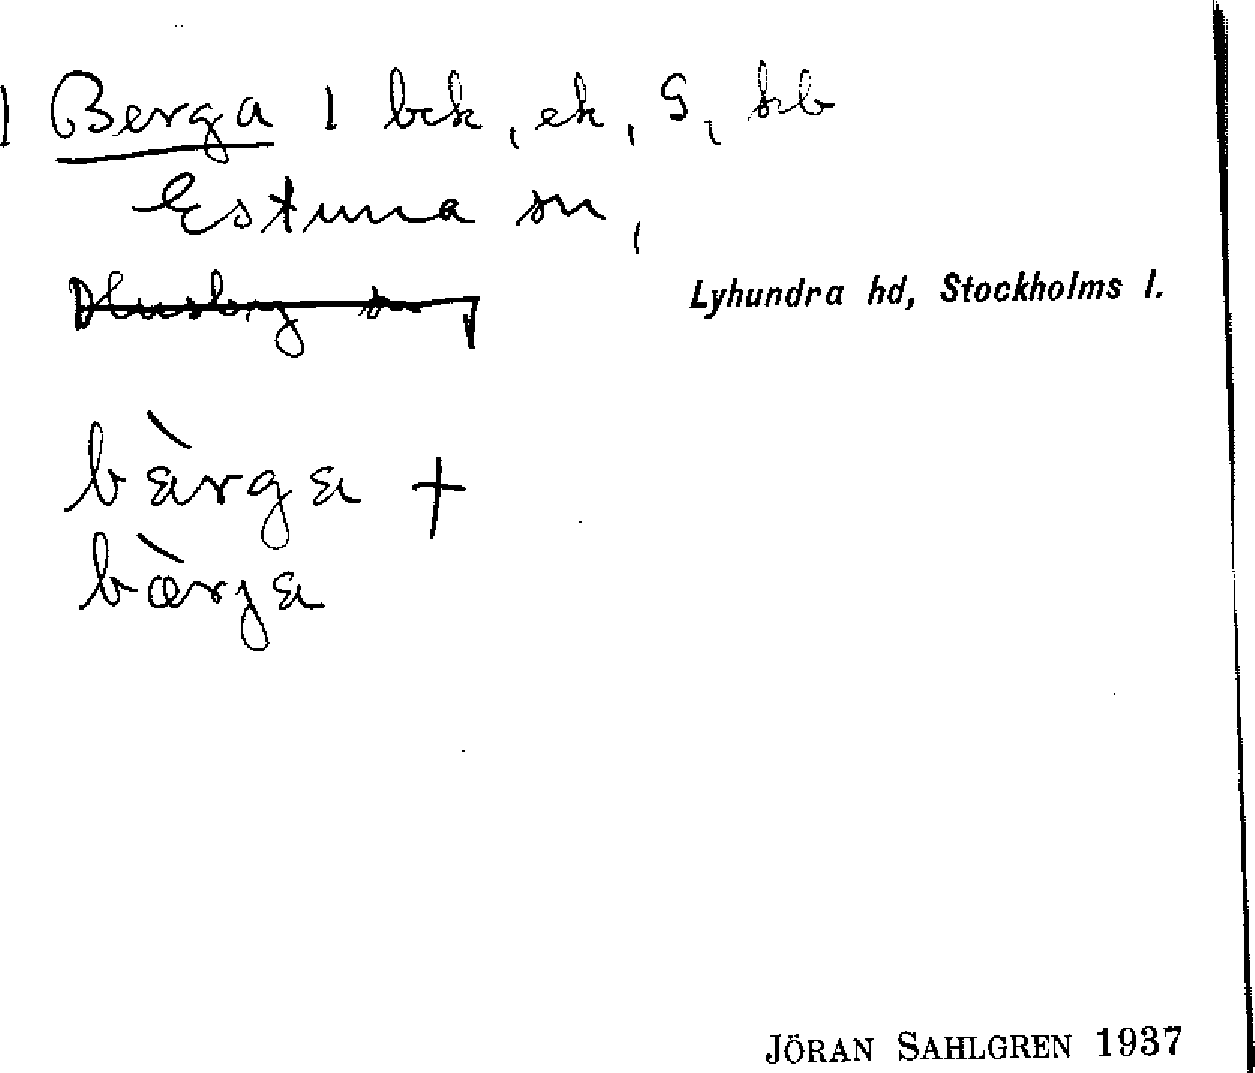 Berga 1 bck, ek, S, kb
Estuna sn,
Husby sn,
Lyhundra hd, Stockholms l.
bàrga +
bærja
JÖRAN SAHLGREN 1937